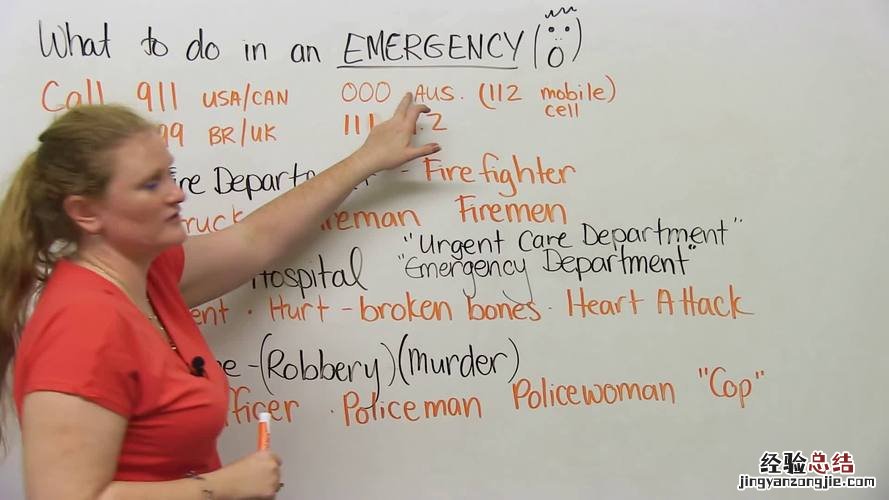 What to do in an EMERGENCY
Call 911 USA/CAN 000 AUS. (112 mobile)
cell
99 BR/UK 111 .2
re Depart - Firefighter
ruck reman Firemen
"Urgent Care Department"
Hospital "Emergency Department"
ent · Hurt - broken bones · Heart Attack
e - (Robbery) (murder)
fficer · Policeman Policewoman "Cop"
经验总结
jingyanzongjie.com